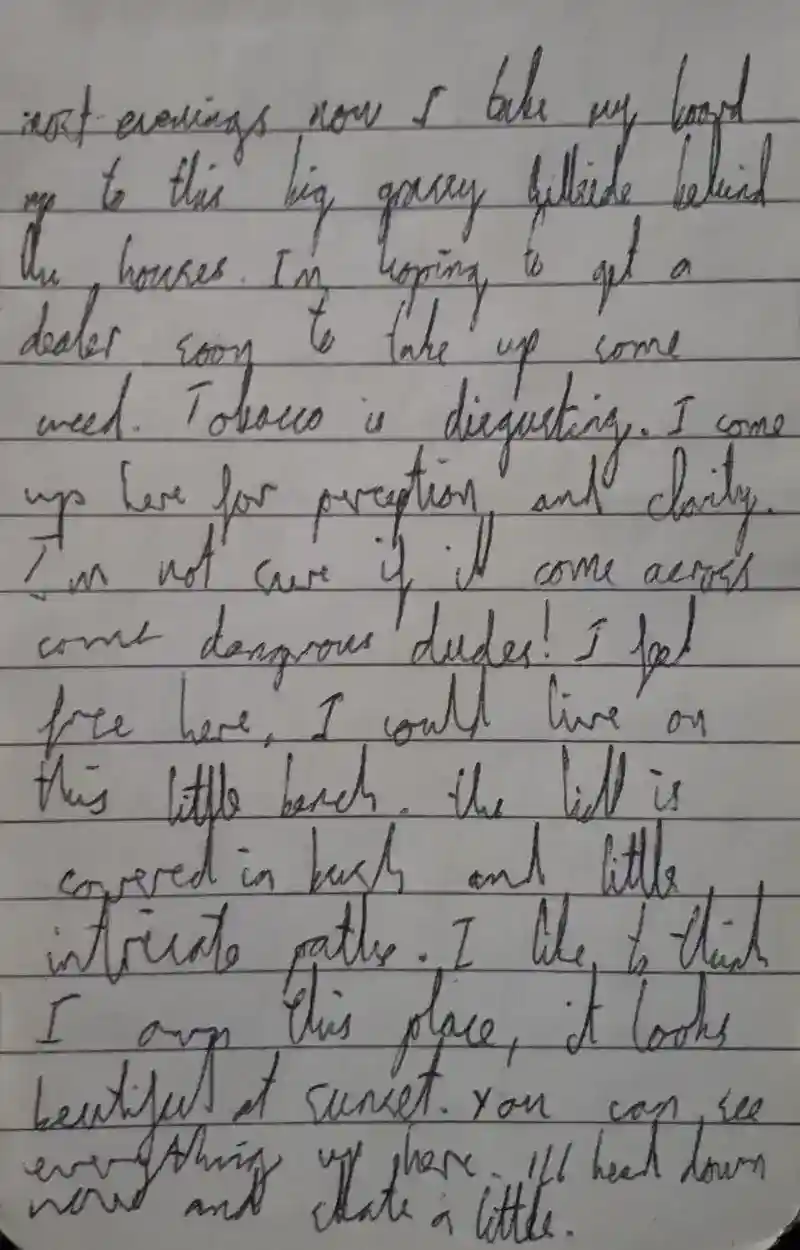 most evenings now I take my board
up to this big grassy hillside behind
the houses. I'm hoping to get a
dealer soon to take up some
weed. Tobacco is disgusting. I come
up here for perception and clarity.
I'm not sure if ill come across
some dangrous dudes! I feel
free here, I could live on
this little bench. the hill is
covered in bush and little
intricate paths. I like to think
I own this place, it looks
beautiful at sunset. You can see
everything up here. I'll head down
now and skate a little.